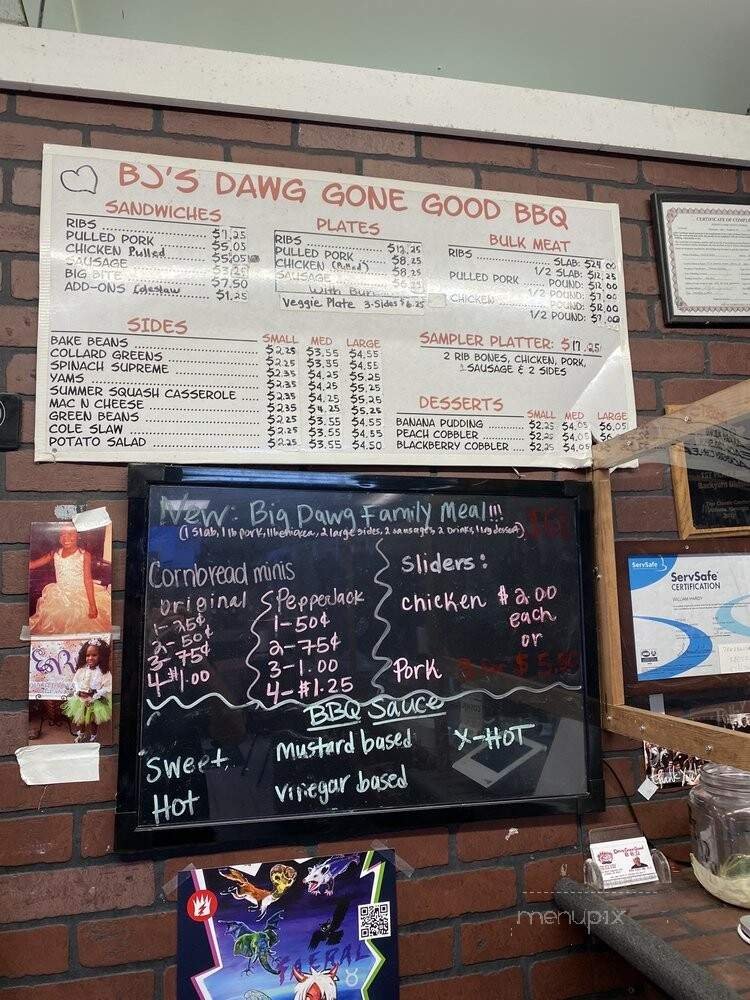 BJ'S DAWG GONE GOOD BBQ
SANDWICHES
RIBS $7.25
PULLED PORK $5.05
CHICKEN Pulled $5.05
SAUSAGE
BIG BITE $7.50
ADD-ONS Coleslaw $1.25
PLATES
RIBS $12.25
PULLED PORK $8.25
CHICKEN (Pulled) $8.25
SAUSAGE
With Bun
Veggie Plate 3-Sides $6.25
BULK MEAT
RIBS SLAB: $24.00
1/2 SLAB: $12.25
PULLED PORK POUND: $12.00
1/2 POUND: $7.00
CHICKEN POUND: $12.00
1/2 POUND: $7.00
SIDES
SMALL MED LARGE
BAKE BEANS $2.25 $3.55 $4.55
COLLARD GREENS $2.25 $3.55 $4.55
SPINACH SUPREME $2.35 $4.25 $5.25
YAMS $2.35 $4.25 $5.25
SUMMER SQUASH CASSEROLE $2.35 $4.25 $5.25
MAC N CHEESE $2.35 $4.25 $5.25
GREEN BEANS $2.25 $3.55 $4.55
COLE SLAW $2.25 $3.55 $4.55
POTATO SALAD $2.25 $3.55 $4.50
SAMPLER PLATTER: $17.25
2 RIB BONES, CHICKEN, PORK,
SAUSAGE & 2 SIDES
DESSERTS
SMALL MED LARGE
BANANA PUDDING $2.25 $4.05 $6.05
PEACH COBBLER $2.25 $4.05
BLACKBERRY COBBLER $2.25 $4.05
New: Big Dawg Family Meal!!!
(1 Slab, 1 lb pork, 1 lb chicken, 2 large sides, 2 sausages, 2 Drinks, 1 lrg dessert)
Cornbread minis
original
1-25¢
2-50¢
3-75¢
4-$1.00
PepperJack
1-50¢
2-75¢
3-1.00
4-$1.25
Sliders:
chicken $2.00
each
or
Pork
BBQ Sauce
Sweet Mustard based X-HOT
Hot Vinegar based
ServSafe
ServSafe
CERTIFICATION
WILLIAM HARDY
FAERAL
menupix